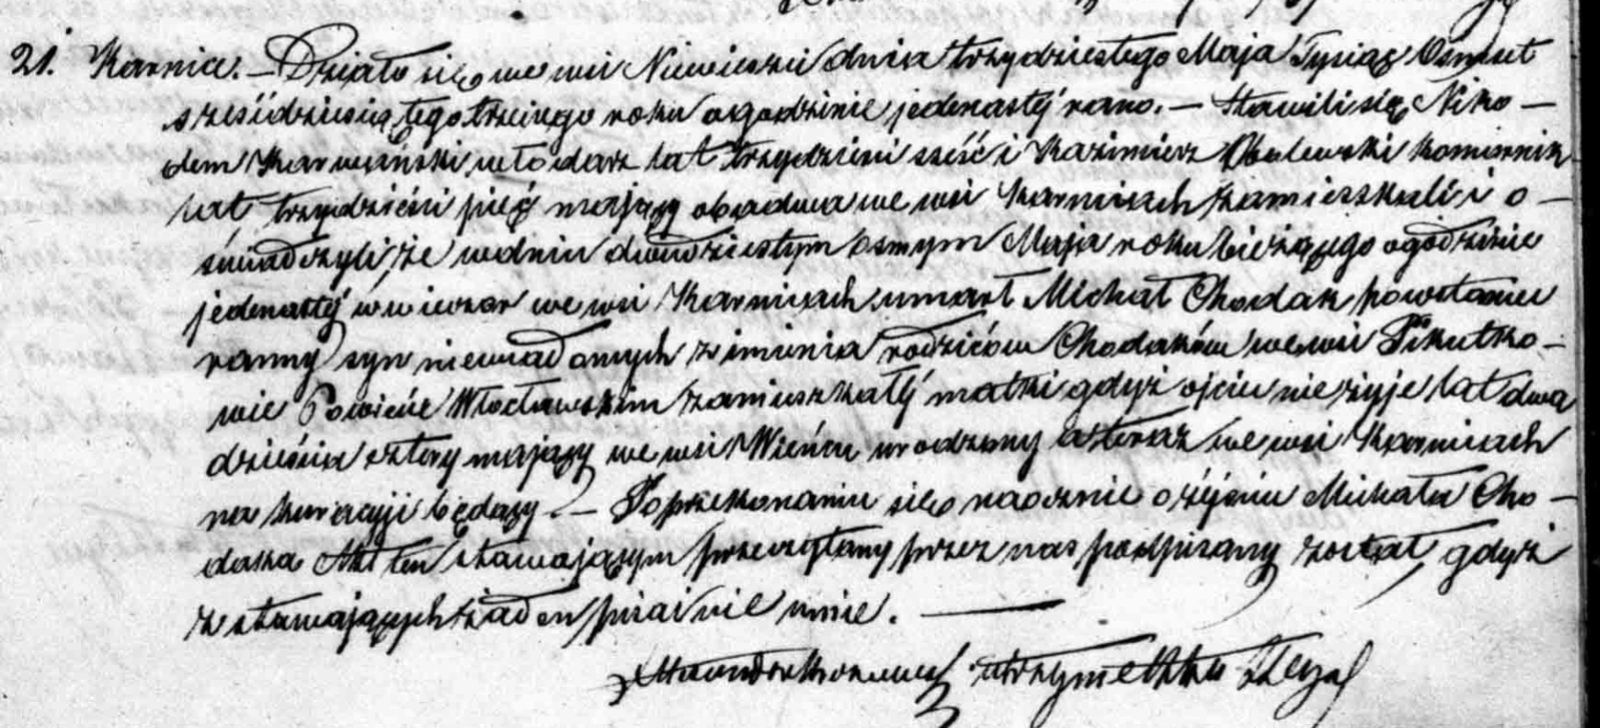 21. Karnice. — Działo się we wsi Niewieszu dnia trzydziestego Maja Tysiąc Osmset
sześćdziesiątego trzeciego roku o godzinie jedenastej rano. — Stawili się Niko —
dem Karwasiński włodarz lat trzydzieści sześć i Kazimierz Obolewski komornik
lat trzydzieści pięć mający obadwa we wsi Karnicach zamieszkali i o —
świadczyli, że w dniu dwudziestym osmym Maja roku bieżącego o godzinie
jedenastej w wieczor we wsi Karnicach umarł Michał Chodak powstaniec
ranny syn niewiadomych z imienia rodziców Chodaków we wsi Pikutko —
wie Powiecie Włocławskim zamieszkałej matki gdyż ojciec nie żyje lat dwa
dzieścia cztery mający we wsi Wieńcu urodzony a teraz we wsi Karnicach
na kuracyji będący. — Po przekonaniu się naocznie o zejściu Michała Cho —
daka Akt ten stawającym przeczytany przez nas podpisany został, gdyż
z stawających żaden pisać nie umie. —